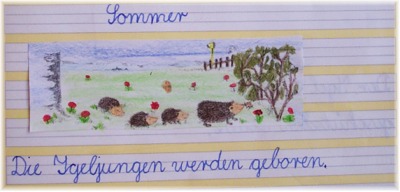 Sommer
Die Igeljungen werden geboren.